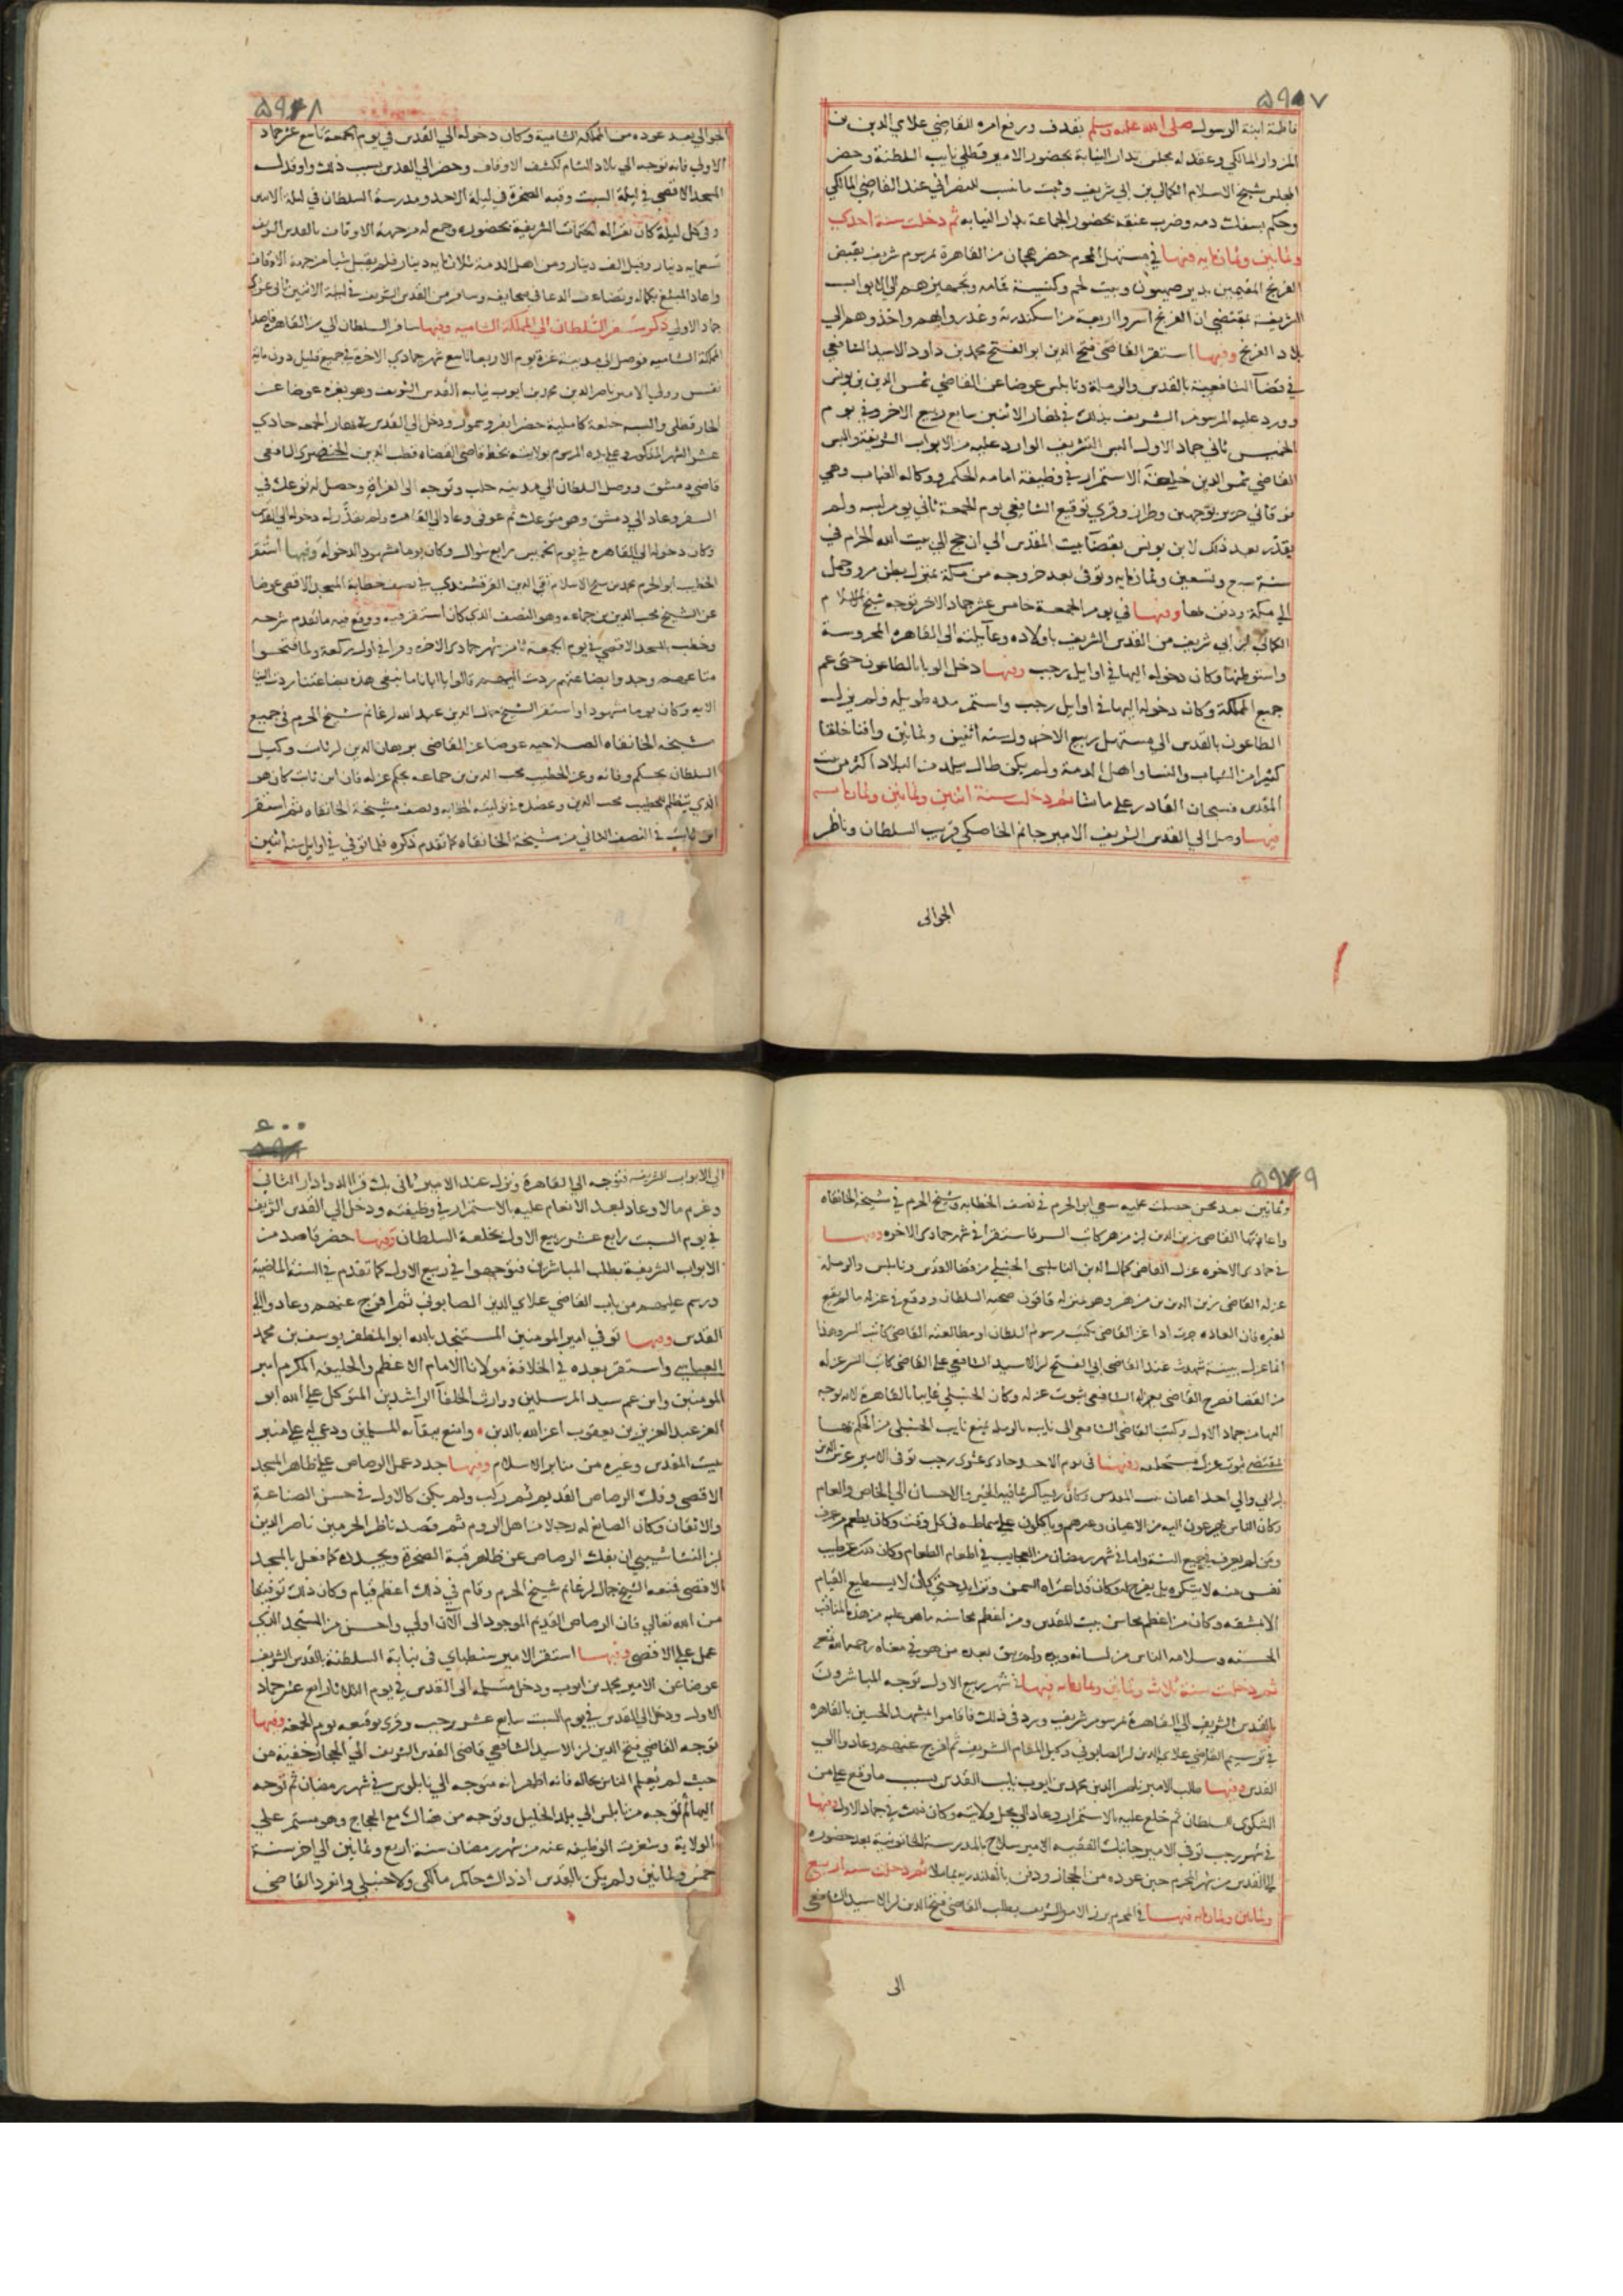 ٥٩٧
فاطمة ابنة الرسول صلى الله عليه وسلم بقذف ورفع امره للقاضي علاي الدين بن
المزوار المالكي وعقد له مجلس بدار النيابة بحضور الامير قطلي نايب السلطنة وحضر
المجلس شيخ الاسلام الكمالي بن ابي شريف وثبت ما نسب للنصراني عند القاضي المالكي
وحكم بسفك دمه وضرب عنقه بحضور الجماعة بدار النيابه ثم دخلت سنة احدى
وثمانين وثمانمايه فيها في مستهل المحرم حضر هجان من القاهرة بمرسوم شريف بقبض
الفرنج المقيمين بدير صهيون وبيت لحم وكنيسة قمامه وتجهيزهم الى الابواب
الشريفة بمقتضى ان الفرنج اسروا اربعة من اسكندرية وغدروا بهم واخذوهم الى
بلاد الفرنج وفيها استقر القاضي فتح الدين ابو الفتح محمد بن داود الاسيد الشافعي
في قضا الشافعية بالقدس والرملة ونابلس عوضا عن القاضي شمس الدين بن يونس
وورد عليه المرسوم الشريف بذلك في نهار الاثنين سابع ربيع الاخر وفي يوم
الخميس ثاني جماد الاول البس التشريف الوارد عليه من الابواب الشريفة والبس
القاضي شمس الدين خلعة الاستمرار في وظيفة امامه الحكم ووكاله الغياب وهي
فوقاني حرير بوجهين وطراز وقري توقيع الشافعي يوم الجمعة ثاني يوم لبسه ولم
يقدر بعد ذلك لابن يونس بقضا بيت المقدس الى ان حج الى بيت الله الحرام في
سنة سبع وتسعين وثمانمايه وتوفى بعد خروجه من مكة بمنزلة بطن مرو وحمل
الى مكة ودفن بها وفيها في يوم الجمعة خامس عشر جماد الاخر توجه شيخ الاسلام
الكمالي بن ابي شريف من القدس الشريف باولاده وعايلته الى القاهره المحروسة
واستوطنها وكان دخوله اليها في اوايل رجب وفيها دخل الوبا بالطاعون حتى عم
جميع المملكة وكان دخوله اليها في اوايل رجب واستمر مده طويله ولم يزل
الطاعون بالقدس الى مستهل ربيع الاخر ولسنه اثنين وثمانين وافنا خلقا
كثيرا من الشباب والنسا واهل الذمة ولم يكن طال ببلد من البلاد اكثر من بيت
المقدس فسبحان القادر على ما يشا ثم دخلت سنة اثنين وثمانين وثمانمايه
فيها وصل الى القدس الشريف الامير جانم الخاصكي قريب السلطان وناظر
الجوالى
٥٩٨
الجوالي بعد عوده من المملكة الشامية وكان دخوله الى القدس في يوم الجمعة تاسع عشر جماد
الاولى فانه توجه الى بلاد الشام لكشف الاوقاف وحضر الى القدس بسبب ذلك واوقد له
المسجد الاقصى في ليلة السبت وقبه الصخرة في ليلة الاحد ومدرسة السلطان في ليلة الاثنين
وفي كل ليلة كان تقرا له الختمات الشريفية بحضوره وجمع له من جهة الاوقاف بالقدس الشريف
تسعمايه دينار وقيل الف دينار ومن اهل الذمة ثلاثمايه دينار فلم يقبل شيا من جهة الاوقاف
واعاد المبلغ بكماله وتضاعف الدعا في صحايفه وسافر من القدس الشريف في ليلة الاثنين ثاني عشري
جماد الاولى ذكر سفر السلطان الى المملكة الشاميه وفيها سافر السلطان الى من القاهره قاصدا
المملكة الشاميه فوصل الى مدينة غزة يوم الاربعا تاسع شهر جمادي الاخرة في جميع قليل دون مائة
نفس وولي الامير ناصر الدين محمد بن ايوب نيابه القدس الشريف وهو بغزه عوضا عن
الجار قطلي والبسه خلعة كاملية خضرا بفرو سمور ودخل الى القدس في نهار الجمعه حادي
عشر الشهر المذكور وعلى يده المرسوم بولايته بخط قاضي القضاه قطب الدين الخيضري الشافعي
قاضي دمشق ووصل السلطان الى مدينه حلب وتوجه الى الفراة وحصل له توعك في
السفر وعاد الى دمشق وهو متوعك ثم عوفى وعاد الى القاهره ولم يقدر له دخوله الى القدس
وكان دخوله الى القاهره في يوم الخميس رابع شوال وكان يوما مشهودا لدخوله وفيها استقر
الخطيب ابو الحرم محمد بن شيخ الاسلام تقي الدين القرقشندي في نصف خطابة المسجد الاقصى عوضا
عن الشيخ محب الدين بن جماعه وهو النصف الذي كان استقر فيه ووقع فيه ما تقدم شرحه
وخطب بالمسجد الاقصى في يوم الجمعة ثامن شهر جمادى الاخره وقرا في اول ركعة ولما فتحوا
متاعهم وجدوا بضاعتهم ردت اليهم قالوا يا ابانا ما نبغي هذه بضاعتنا ردت الينا
الايه وكان يوما مشهودا واستقر الشيخ جمال الدين عبد الله بن غانم شيخ الحرم في جميع
شيخة الخانقاه الصلاحيه عوضا عن القاضى برهان الدين بن ثابت وكيل
السلطان بحكم وفاته وعن الخطيب محب الدين بن جماعه بحكم عزله فان ابن ثابت كان هو
الذي يتظلم للخطيب محب الدين وعضده في توليته الخطابه ونصف مشيخة الخانقاه ثم استقر
ابن ثابت في النصف الثاني من شيخة الخانقاه كما تقدم ذكره فلما توفي في اوايل سنه اثنين
٥٩٩
وثمانين بعد محن حصلت عليه سعى ابو الحرم في نصف الخطابه وشيخ الحرم في شيخة الخانقاه
واعانهما القاضى زين الدين بن مزهر كاتب السر فاستقرا في شهر جمادى الاخره وفيها
في جمادى الاخره عزل القاضى كمال الدين النابلسى الحنبلي من قضا القدس ونابلس والرمله
عزله القاضى زين الدين بن مزهر وهو بمنزله قاقون صحبه السلطان ووقع في عزله ما لم يقع
لغيره فان العاده جرت اذا عزل القاضى يكتب مرسوم السلطان او مطالعته القاضى كاتب السر وهذا
انما عزل ببينة شهدت عند القاضى ابي الفتح بن الاسيد الشافعي على القاضى كاتب السر عزله
من القضا فصرح القاضى بعزله الشافعى بثبوت عزله وكان الحنبلي غايبا بالقاهرة لانه توجه
اليها من جماد الاول وكتب القاضى الشافعى الى نايبه بالرمله بمنع نايب الحنبلي من الحكم بها
بمقتضى ثبوت عزل مستخلفه وفيها في يوم الاحد حادى عشرى رجب توفى الامير
وكان الناس يهرعون اليه من الاعيان وغيرهم وياكلون على سماطه في كل وقت وكان يطعم من يعرف
ومن لم يعرف في جميع السنة واما في شهر رمضان من العجايب في اطعام الطعام وكان ذلك عن طيب
نفس منه لا يتكره بل يفرح له وكان قد اعتراه السمن وتزايد حتى كان لا يستطيع القيام
الا بمشقه وكان من اعظم محاسن بيت المقدس ومن اعظم محاسنه ما هو عليه من هذه المناقب
الحسنه وسلامه الناس من لسانه ويده ولم يبق بعده من هو في معناه رحمه الله تعالى
ثم دخلت سنة ثلاث وثمانين وثمانمايه فيها في شهر ربيع الاول توجه المباشرون
بالقدس الشريف الى القاهرة بمرسوم شريف ورد فى ذلك فاقاموا بمشهد الحسين بالقاهره
في ترسيم القاضى علاي الدين بن الصابوني وكيل المقام الشريف ثم افرج عنهم وعادوا الى
القدس وفيها طلب الامير ناصر الدين محمد بن ايوب نايب القدس بسبب ما وقع على من
الشكوى للسلطان ثم خلع عليه بالاستمرار وعاد الى محل ولايته وكان ذلك في جماد الاول وفيها
في شهر رجب توفي الامير جانبك الفقيه الامير سلاح بالمدرسة الخاتونيه بعد حضوره
الى القدس من شهر المحرم حين عوده من الحجاز ودفن بالقلندريه بماملا ثم دخلت سنه اربع
وثمانين وثمانمايه فيها في المحرم برز الامر الشريف بطلب القاضى فتح الدين بن الاسيد الشافعى
الى
٦٠٠
الى الابواب الشريفه فتوجه الى القاهرة ونزل عند الامير تاني بك قرا الدوادار الثاني
وغرم مالا وعاد بعد الانعام عليه بالاستمرار في وظيفته ودخل الى القدس الشريف
في يوم السبت رابع عشر ربيع الاول بخلعة السلطان وفيها حضر قاصد من
الابواب الشريفة بطلب المباشرين فتوجهوا في ربيع الاول كما تقدم في السنة الماضية
ورسم عليهم من باب القاضي علاي الدين الصابوني ثم افرج عنهم وعادوا الى
القدس وفيها توفي امير المومنين المستنجد بالله ابو المظفر يوسف بن محمد
العباسي واستقر بعده في الخلافة مولانا الامام الاعظم والخليفه المكرم امير
المومنين وابن عم سيد المرسلين ووارث الخلفا الراشدين المتوكل على الله ابو
العز عبد العزيز بن يعقوب اعز الله بالدين وامتع ببقايه المسلمين ودعي له على منبر
بيت المقدس وغيره من منابر الاسلام وفيها جدد عمل الرصاص على ظاهر المسجد
الاقصى وفك الرصاص القديم ثم ركب ولم يكن كالاول في حسن الصناعة
والاتقان وكان الصانع له رجلا من اهل الروم ثم قصد ناظر الحرمين ناصر الدين
بن النشاشيبي ان يفك الرصاص عن ظاهر قبة الصخرة ويجدده كما فعل بالمسجد
الاقصى فمنعه الشيخ جمال بن غانم شيخ الحرم وقام في ذلك اعظم قيام وكان ذلك توفيقا
من الله تعالى فان الرصاص القديم الموجود الى الآن اولى واحسن من المستجد الذي
عمل على الاقصى وفيها استقر الامير سنطباي فى نيابة السلطنة بالقدس الشريف
عوضا عن الامير محمد بن ايوب ودخل متسلمه الى القدس في يوم الثلاثا رابع عشر جماد
الاول ودخل الى القدس في يوم السبت سابع عشر رجب وقرى توقيعه يوم الجمعه وفيها
توجه القاضي فتح الدين بن الاسيد الشافعي قاضى القدس الشريف الى الحجاز خفية من
حيث لم يعلم الناس بحاله فانه اظهر انه متوجه الى نابلس في شهر رمضان ثم توجه
اليها ثم توجه من نابلس الى بلد الخليل وتوجه من هناك مع الحجاج وهو مستمر على
الولاية وشغرت الوظيفه عنه من شهر رمضان سنة اربع وثمانين الى اخر سنة
خمس وثمانين ولم يكن بالقدس اذ ذاك حاكم مالكي ولا حنبلي وانفرد القاضى